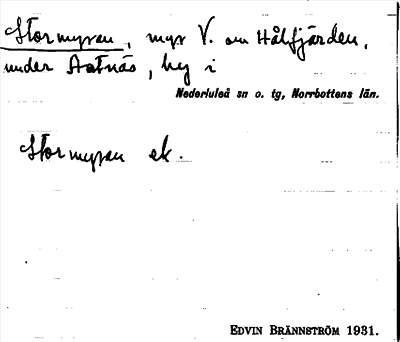 Stormyran, myr V. om Hålfjärden,
under Antnäs, by i
Nederluleå sn o. tg, Norrbottens län.
Stormyran ek.
EDVIN BRÄNNSTRÖM 1931.